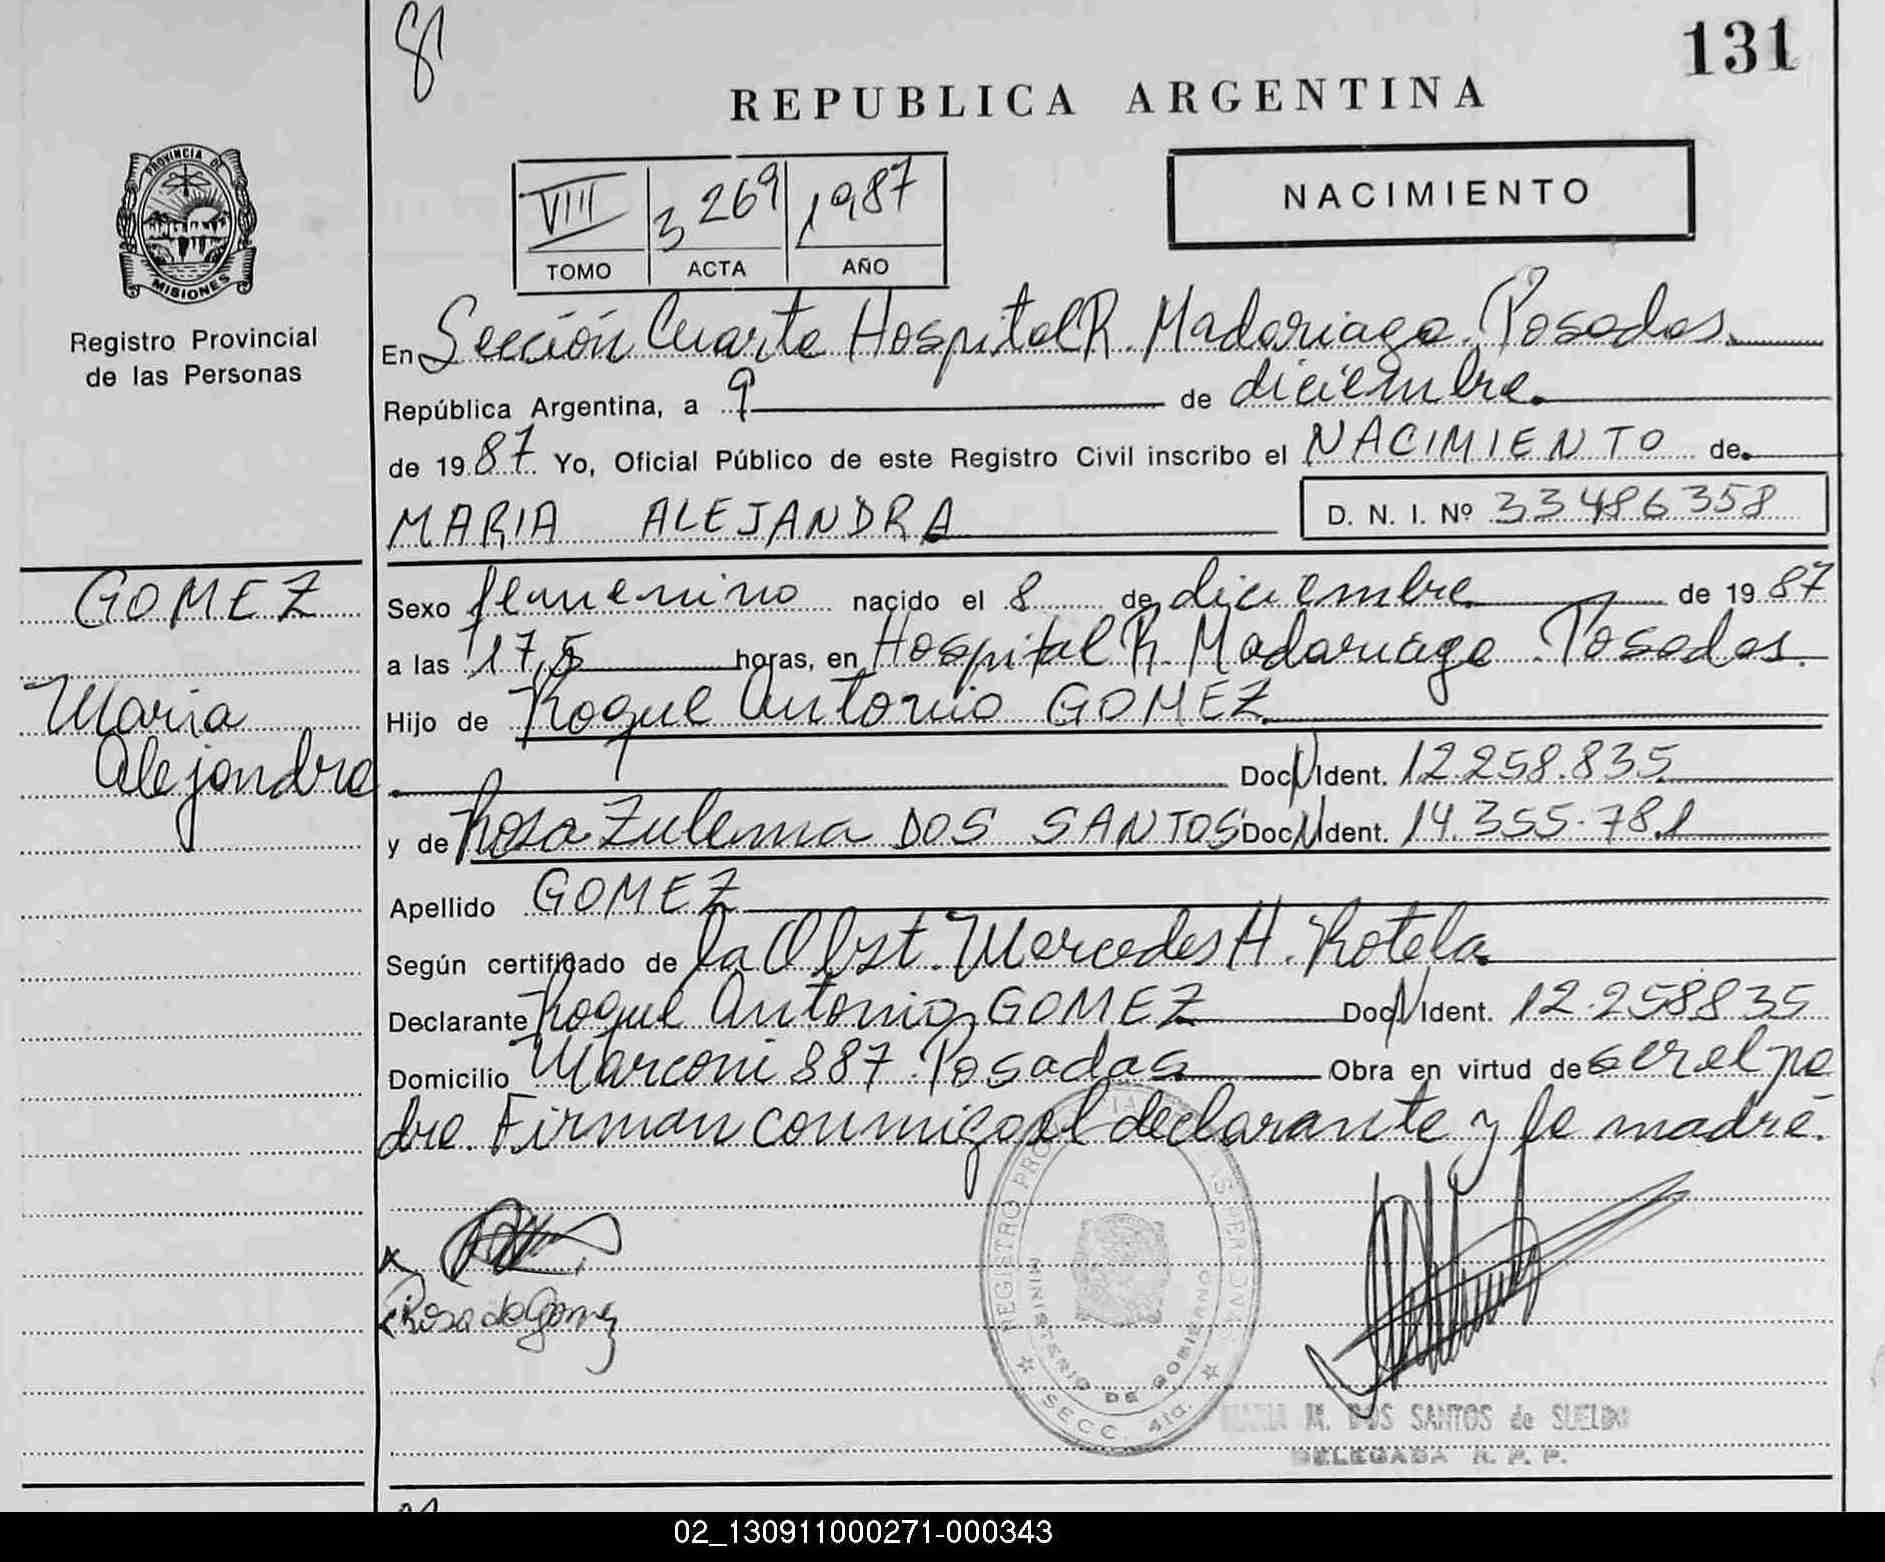 131
REPUBLICA ARGENTINA
PROVINCIA DE
MISIONES
Registro Provincial
de las Personas
VIII 3269 1987
TOMO ACTA AÑO
NACIMIENTO
En Sección Cuarta Hospital R. Madariaga. Posadas.
República Argentina, a 9 de diciembre
de 1987 Yo, Oficial Público de este Registro Civil inscribo el NACIMIENTO de
MARIA ALEJANDRA
D. N. I. Nº 33486358
GOMEZ
Maria
Alejandra
Sexo femenino nacido el 8 de diciembre de 1987
a las 17,5 horas, en Hospital R. Madariaga Posadas.
Hijo de Roque Antonio GOMEZ
Doc N Ident. 12.258.835
y de Rosa Zulema DOS SANTOS Doc N Ident. 14.355.781
Apellido GOMEZ
Según certificado de la Obst. Mercedes H. Rotela
Declarante Roque Antonio GOMEZ Doc N Ident. 12.258835
Domicilio Marconi 887 Posadas Obra en virtud de ser el pa
dre. Firman conmigo el declarante y la madre.
Rosa de Gomez
REGISTRO
MINISTERIO DE GOBIERNO
SECC. 4ta.
MARIA M. DOS SANTOS de SUELDO
DELEGADA R. P. P.
02_130911000271-000343